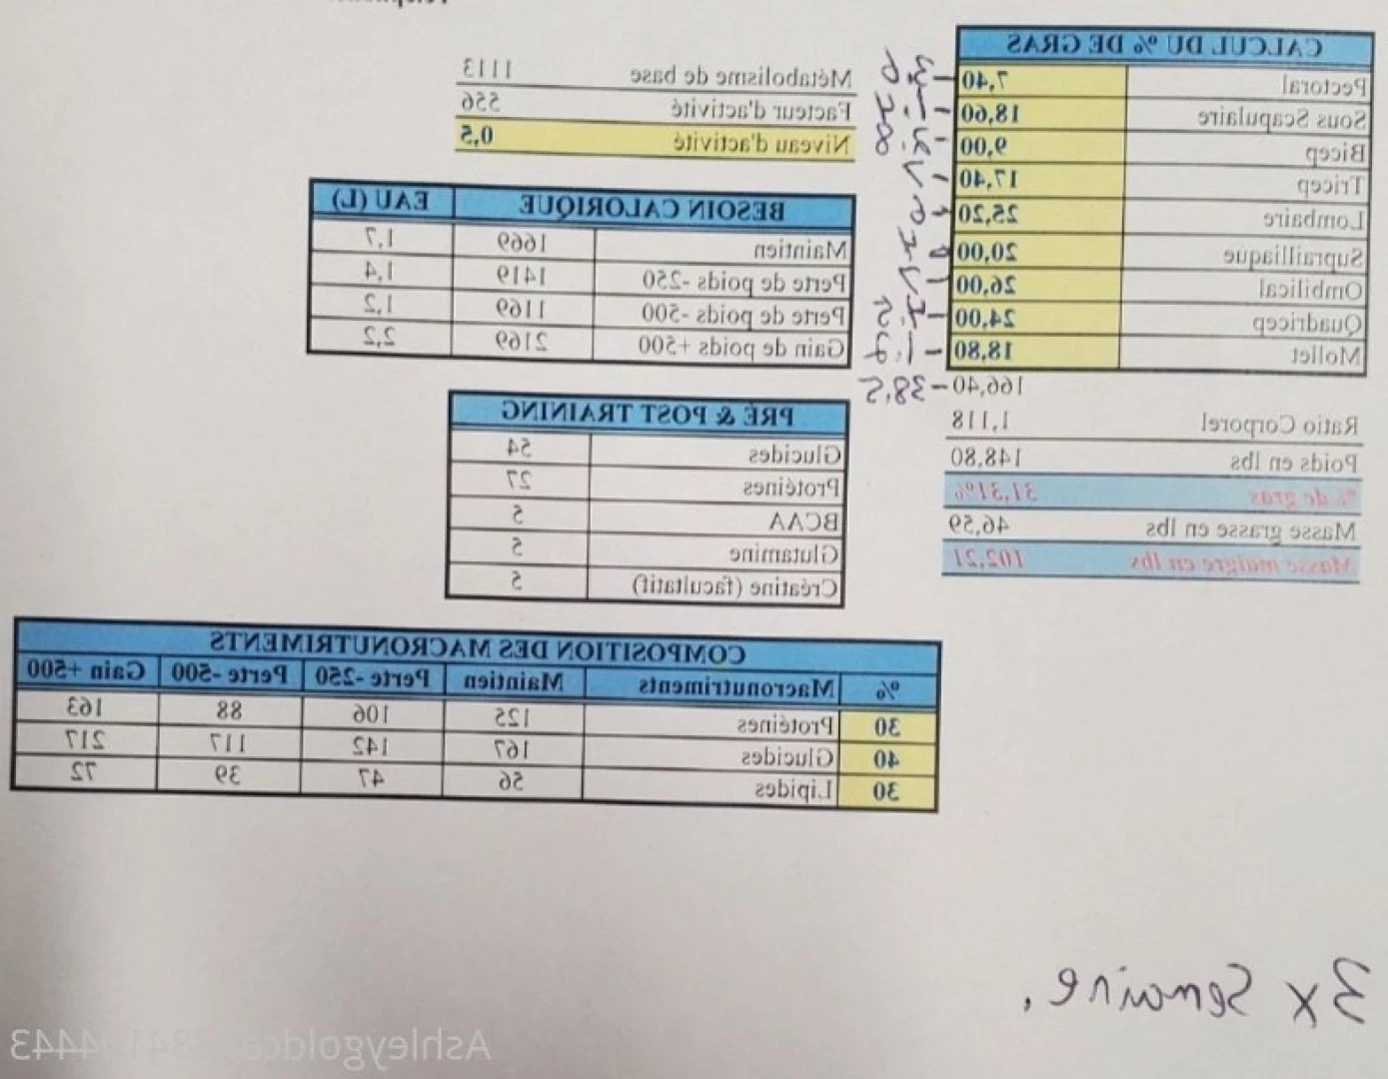 CALCUL DU % DE GRAS
Pectoral 7,40
Sous Scapulaire 18,60
Bicep 9,00
Tricep 17,40
Lombaire 25,20
Suprailliaque 20,00
Ombilical 26,00
Quadricep 24,00
Mollet 18,80
166,40 - 38,5
Ratio Corporel 1,118
Poids en lbs 148,80
% de gras 31,31%
Masse grasse en lbs 46,59
Masse maigre en lbs 102,21
Métabolisme de base 1113
Facteur d'activité 556
Niveau d'activité 0,5
BESOIN CALORIQUE EAU (L)
Maintien 1669 1,7
Perte de poids -250 1419 1,4
Perte de poids -500 1169 1,2
Gain de poids +500 2169 2,2
PRÉ & POST TRAINING
Glucides 54
Protéines 27
BCAA 5
Glutamine 5
Créatine (facultatif) 5
COMPOSITION DES MACRONUTRIMENTS
% Macronutriments Maintien Perte -250 Perte -500 Gain +500
30 Protéines 125 106 88 163
40 Glucides 167 142 117 217
30 Lipides 56 47 39 72
3 x Semaine.